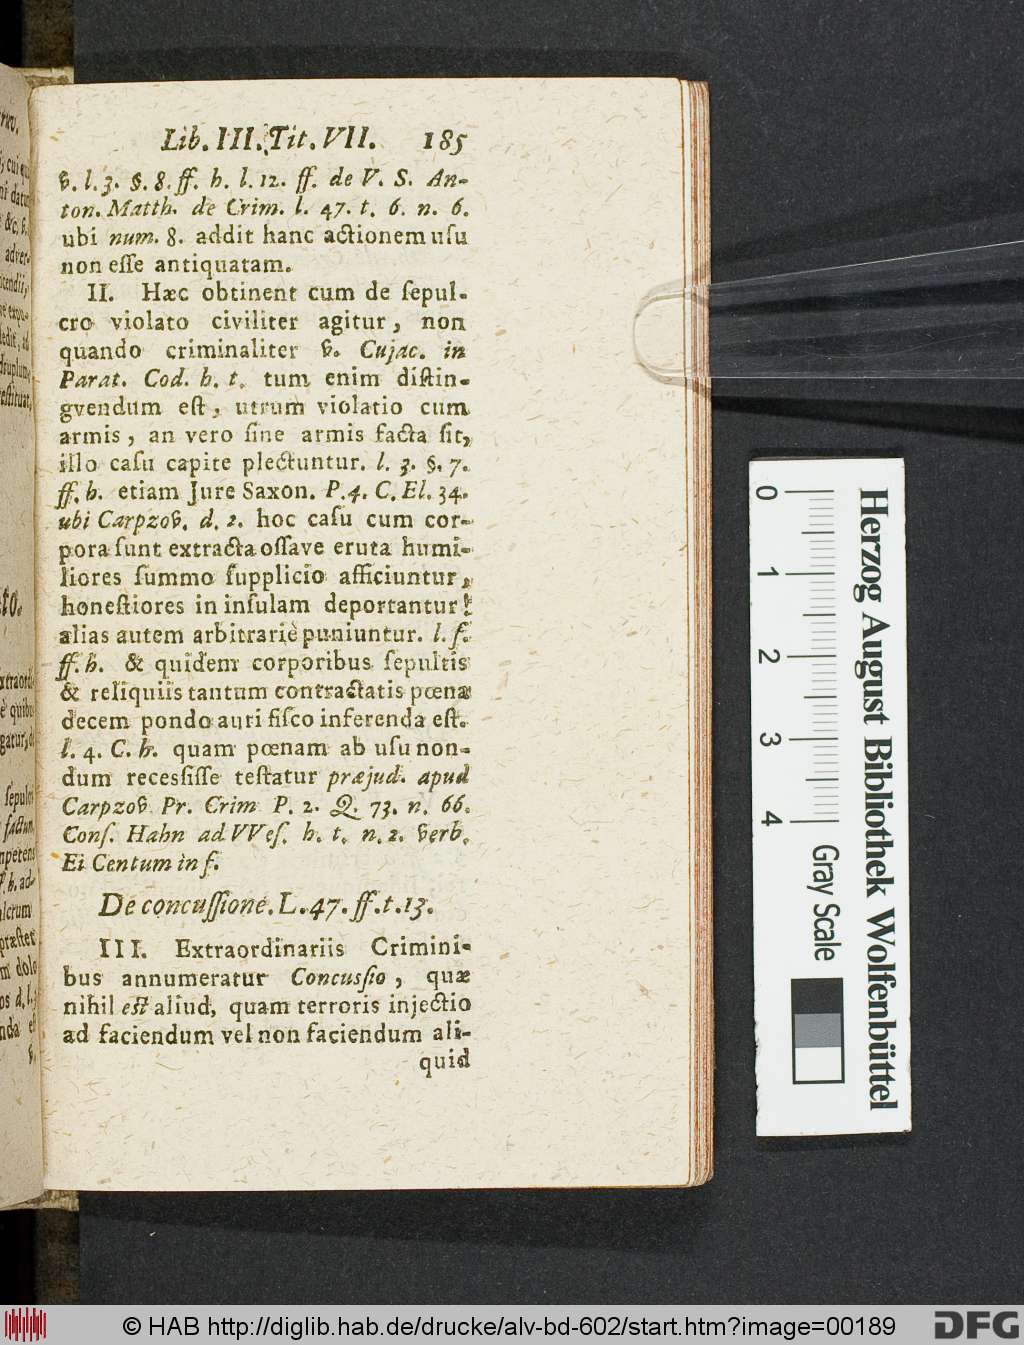 Lib. III. Tit. VII. 185
v. l. 3. §. 8. ff. h. l. 12. ff. de V. S. An-
ton. Matth. de Crim. l. 47. t. 6. n. 6.
ubi num. 8. addit hanc actionem uſu
non eſſe antiquatam.
II. Hæc obtinent cum de ſepul-
cro violato civiliter agitur, non
quando criminaliter v. Cujac. in
Parat. Cod. h. t. tum enim diſtin-
gvendum eſt, utrum violatio cum
armis, an vero ſine armis facta ſit,
illo caſu capite plectuntur. l. 3. §. 7.
ff. h. etiam Jure Saxon. P. 4. C. El. 34.
ubi Carpzov. d. 2. hoc caſu cum cor-
pora ſunt extracta oſſave eruta humi-
liores ſummo ſupplicio afficiuntur,
honeſtiores in inſulam deportantur:
alias autem arbitrariè puniuntur. l. f.
ff. h. & quidem corporibus ſepultis
& reliquiis tantum contractatis pœna
decem pondo auri fiſco inferenda eſt.
l. 4. C. h. quam pœnam ab uſu non-
dum receſſiſſe teſtatur præjud. apud
Carpzov Pr. Crim P. 2. Q. 73. n. 66.
Conſ. Hahn ad VVeſ. h. t. n. 2. verb.
Ei Centum in f.
De concuſſione. L. 47. ff. t. 13.
III. Extraordinariis Crimini-
bus annumeratur Concuſſio, quæ
nihil eſt aliud, quam terroris injectio
ad faciendum vel non faciendum ali-
quid
0 1 2 3 4
Herzog August Bibliothek Wolfenbüttel
Gray Scale
© HAB http://diglib.hab.de/drucke/alv-bd-602/start.htm?image=00189
DFG